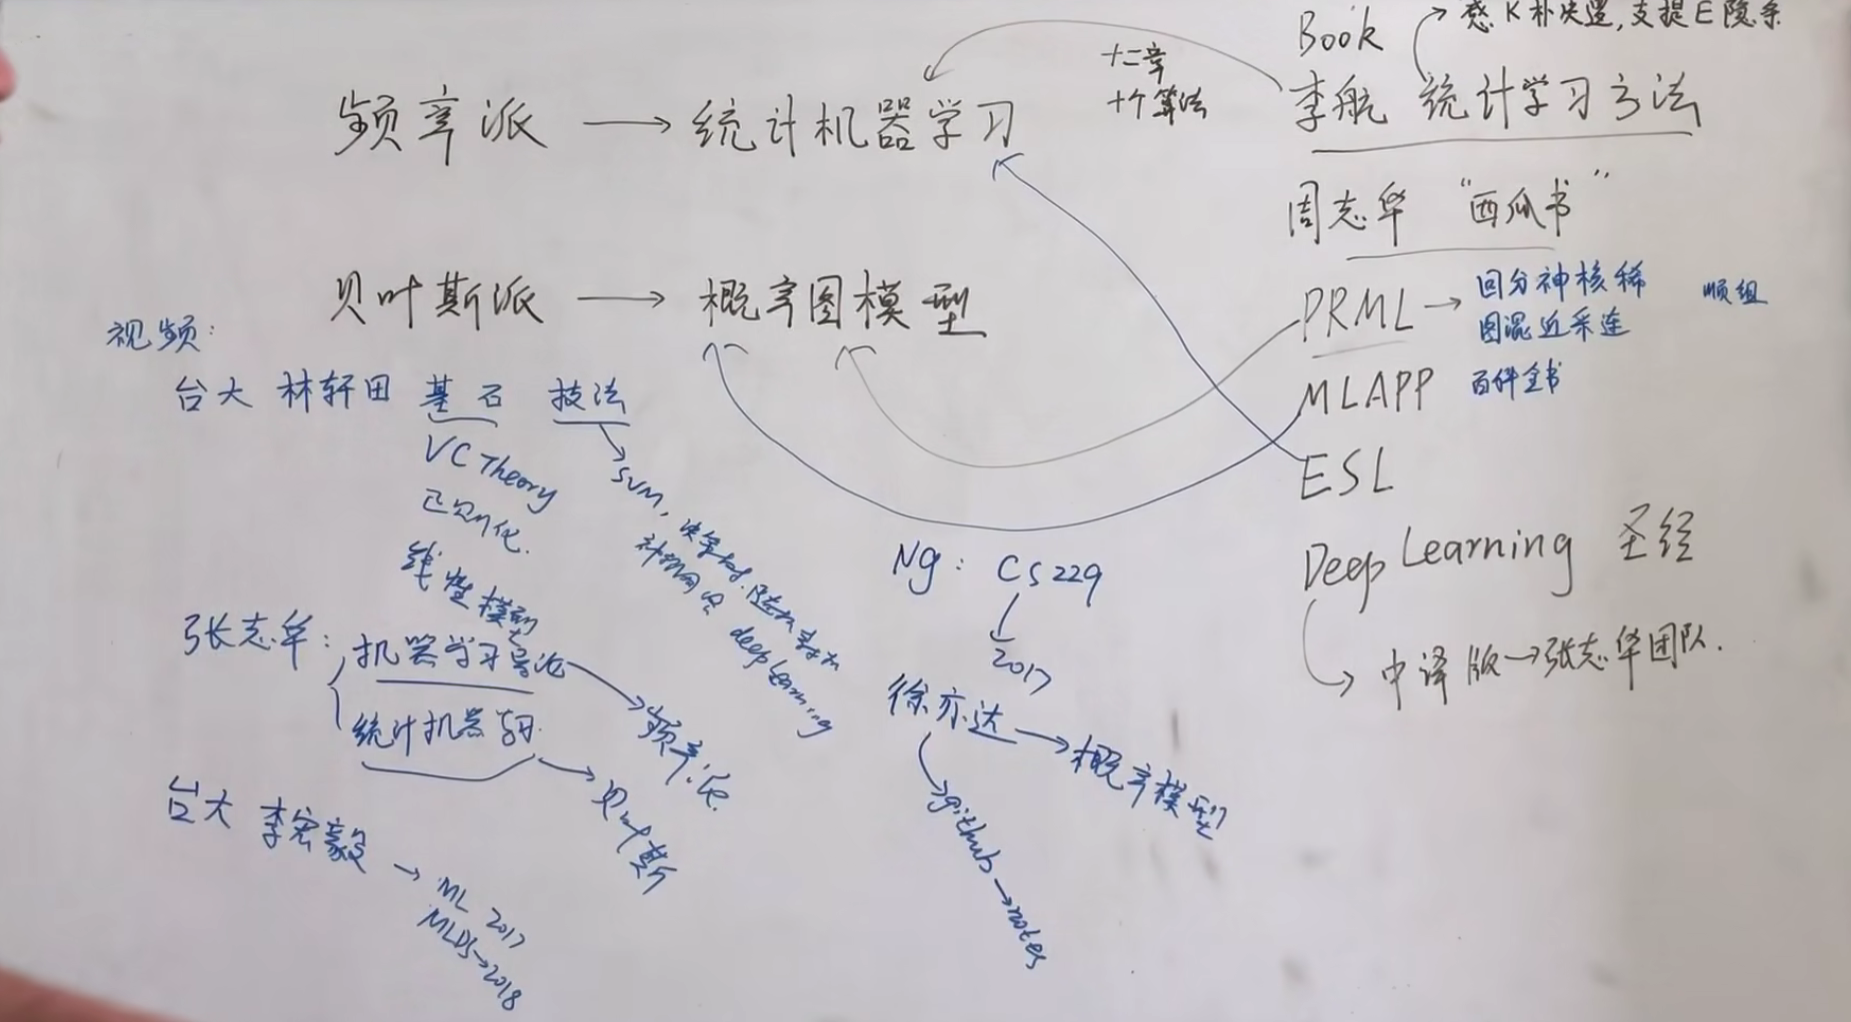 频率派 → 统计机器学习
贝叶斯派 → 概率图模型
Book
感K朴决逻,支提E隐条
十二章
十个算法
李航 统计学习方法
周志华 “西瓜书”
PRML → 回分神核稀
图混近采连
顺组
MLAPP 百科全书
ESL
Deep Learning 圣经
中译版→张志华团队.
视频:
台大 林轩田 基石 技法
VC Theory
正则化.
线性模型
SVM, 决策树.随机森林
神经网络 deep learning
张志华: 机器学习导论
频率派.
统计机器学习.
贝叶斯
台大 李宏毅 → ML 2017
MLDS→2018
Ng: CS229
2017
徐亦达→概率模型
github→notes